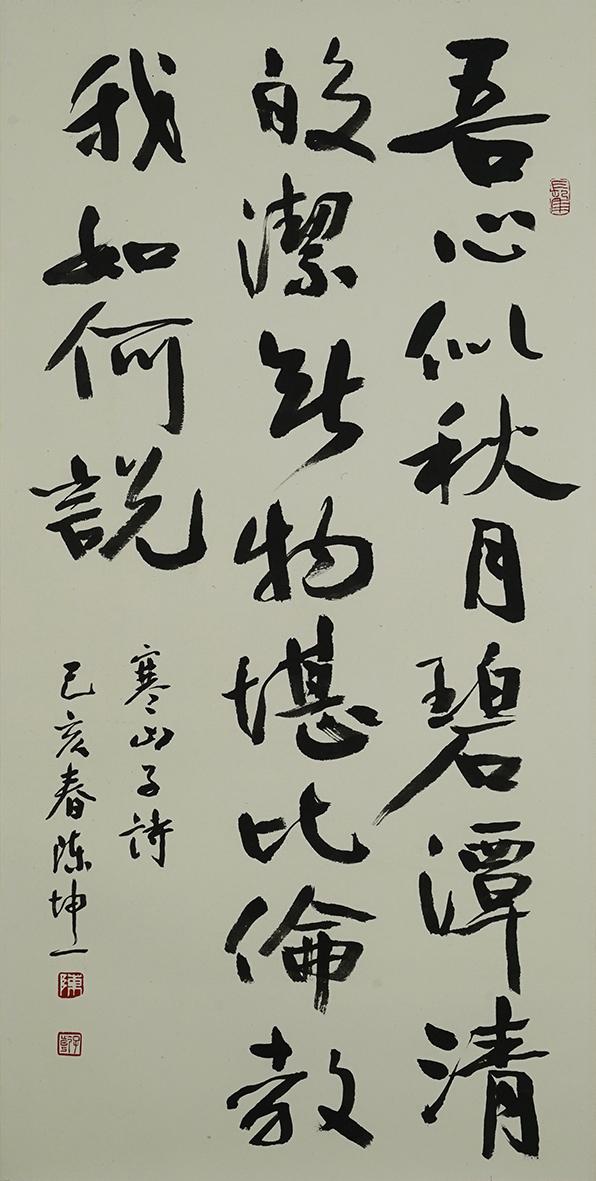 吾心似秋月碧潭清
皎潔無物堪比倫教
我如何說
寒山子詩
己亥春陈坤一
陳